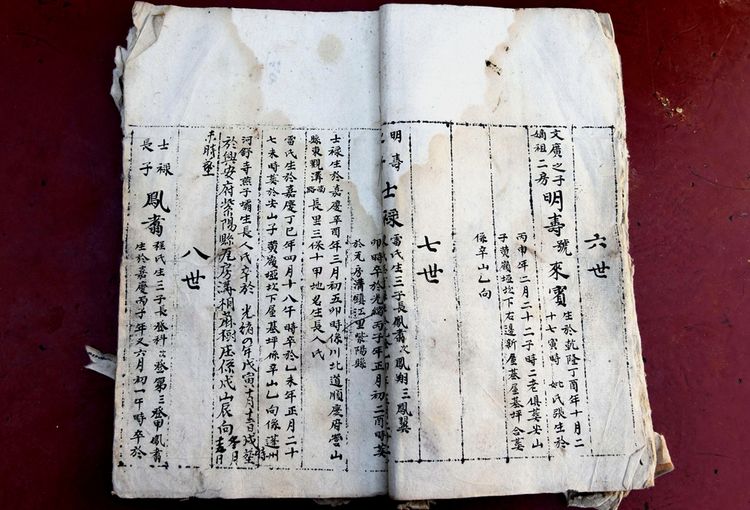 六世
文廣之子
嫡祖二房
明壽號來賓
生於乾隆丁酉年十月二
十七寅時 妣氏張生於
丙申年二月二十二子時二老俱葬安山
子黄嶺埡坎下右邊新屋基屋基坪合葬
係辛山乙向
七世
明壽
士祿
雷氏生三子長鳳翥次鳳翔三鳳翼
卯時卒於光緒丙子年正月初二酉時葬
於元房溝
士祿生於嘉慶辛酉年三月初五卯時係川北道順慶府營山
縣東觀溝南路長里三保十甲地名生長人氏
雷氏生於嘉慶丁巳年四月十八午時卒於乙未年正月二十
七未時葬於安山子黄嶺埡坎下屋基坪係辛山乙向係蓬州
河舒寺燕子塥生長人氏卒於光緒四年戊寅十月十二日戌時
於興安府紫陽縣瓦房溝桐蔴樹庄係戌山辰向
未時塟
八世
士祿
長子
鳳翥
程氏生三子長登科次登第三登甲鳳翥
生於嘉慶丙子年又六月初一午時卒於